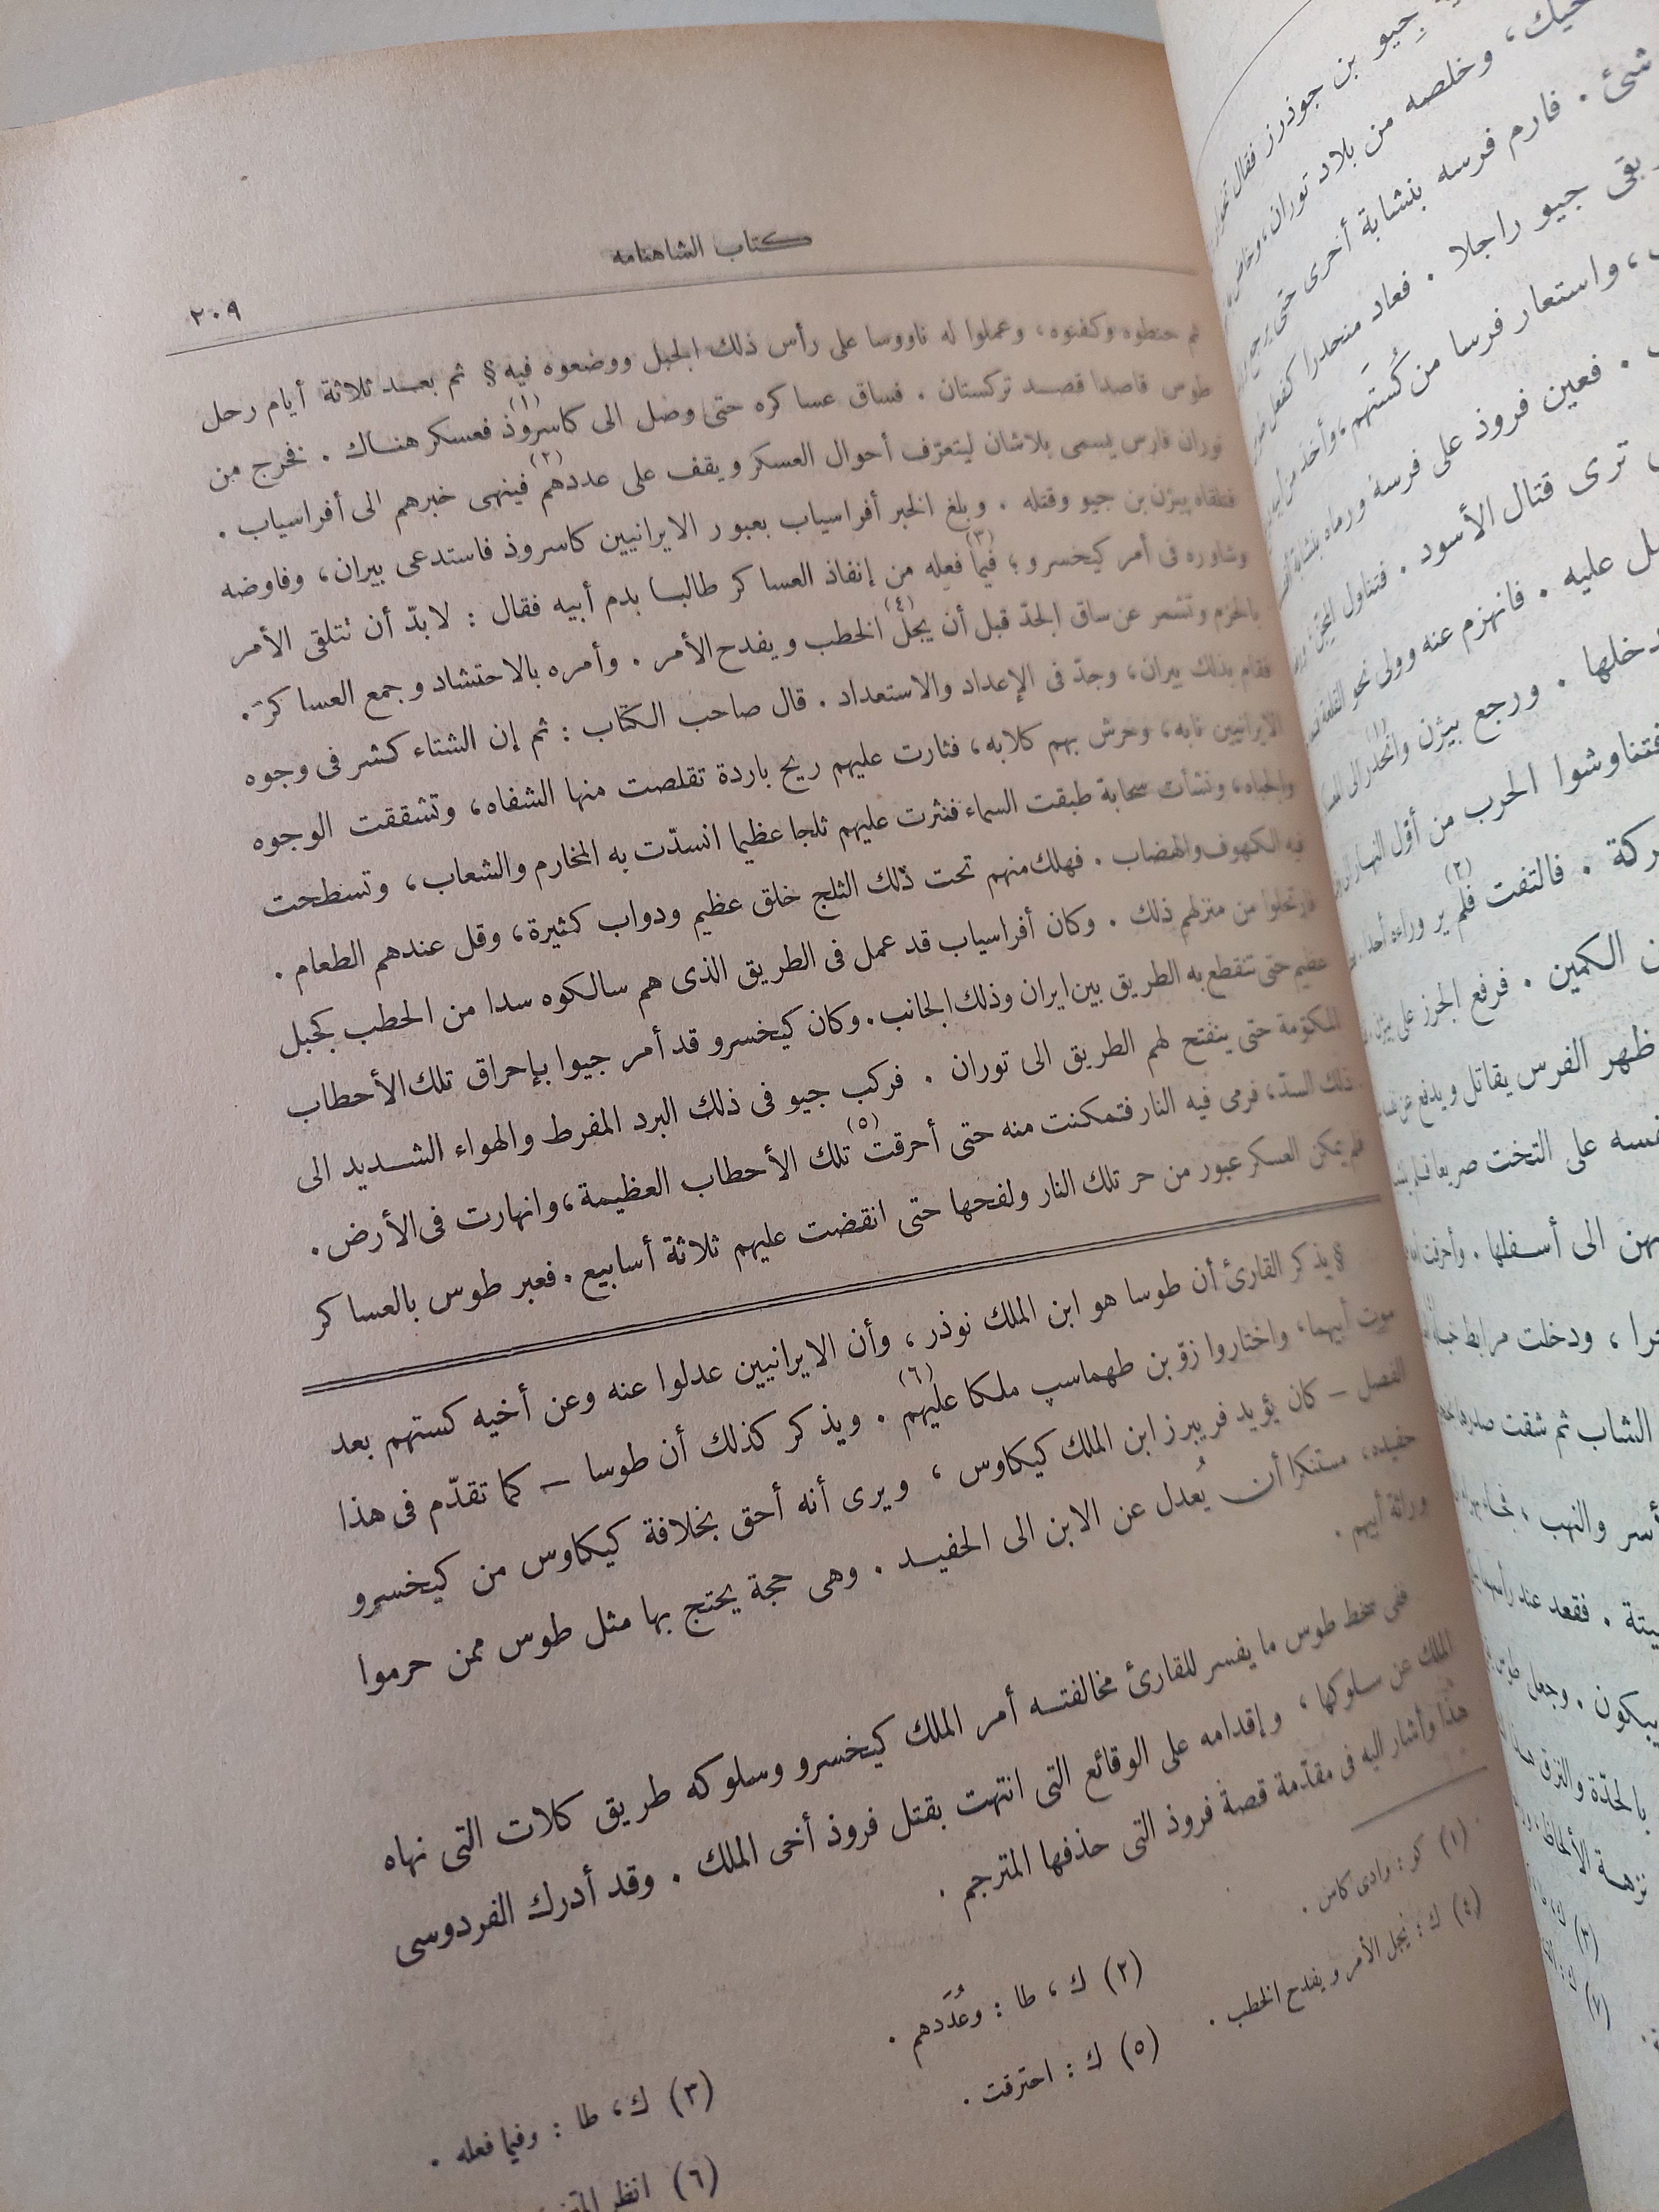 كتاب الشاهنامه
٢٠٩
ثم حنطوه وكفنوه، وعملوا له ناووسا على رأس ذلك الجبل ووضعوه فيه § ثم بعد ثلاثة أيام رحل
طوس قاصدا قصد تركستان . فساق عساكره حتى وصل الى كاسروذ(١) فعسكر هناك . فخرج من
توران فارس يسمى بلاشان ليتعرّف أحوال العسكر ويقف على عددهم(٢) فينهى خبرهم الى أفراسياب .
فتلقاه بيژن بن جيو وقتله . وبلغ الخبر أفراسياب بعبور الايرانيين كاسروذ فاستدعى بيران، وفاوضه
وشاوره فى أمر كيخسرو؛ فيما(٣) فعله من إنفاذ العساكر طالبا بدم أبيه فقال : لابدّ أن نتلقى الأمر
بالحزم ونشمر عن ساق الجدّ قبل أن يجلّ(٤) الخطب ويفدح الأمر . وأمره بالاحتشاد وجمع العساكر .
فقام بذلك بيران، وجدّ فى الإعداد والاستعداد . قال صاحب الكتاب : ثم إن الشتاء كشر فى وجوه
الايرانيين نابه، وحرش بهم كلابه، فثارت عليهم ريح باردة تقلصت منها الشفاه، وتشققت الوجوه
والجباه، ونشأت سحابة طبقت السماء فنثرت عليهم ثلجا عظيما انسدّت به المخارم والشعاب، وتسطحت
به الكهوف والهضاب . فهلك منهم تحت ذلك الثلج خلق عظيم ودواب كثيرة، وقل عندهم الطعام .
فارتحلوا من منزلهم ذلك . وكان أفراسياب قد عمل فى الطريق الذى هم سالكوه سدا من الحطب كجبل
عظيم حتى تنقطع به الطريق بين ايران وذلك الجانب . وكان كيخسرو قد أمر جيوا بإحراق تلك الأحطاب
المكوّمة حتى ينفتح لهم الطريق الى توران . فركب جيو فى ذلك البرد المفرط والهواء الشديد الى
ذلك السدّ، فرمى فيه النار فتمكنت منه حتى أحرقت(٥) تلك الأحطاب العظيمة، وانهارت فى الأرض .
فلم يمكن العسكر عبور من حر تلك النار ولفحها حتى انقضت عليهم ثلاثة أسابيع . فعبر طوس بالعساكر
§ يذكر القارئ أن طوسا هو ابن الملك نوذر، وأن الايرانيين عدلوا عنه وعن أخيه كستهم بعد
موت أبيهما، واختاروا زوّ بن طهماسپ ملكا عليهم(٦) . ويذكر كذلك أن طوسا — كما تقدّم فى هذا
الفصل — كان يؤيد فريبرز ابن الملك كيكاوس، ويرى أنه أحق بخلافة كيكاوس من كيخسرو
حفيده، مستنكرا أن يُعدل عن الابن الى الحفيد . وهى حجة يحتج بها مثل طوس ممن حرموا
وراثة أبيهم .
ففى سخط طوس ما يفسر للقارئ مخالفته أمر الملك كيخسرو وسلوكه طريق كلات التى نهاه
الملك عن سلوكها، وإقدامه على الوقائع التى انتهت بقتل فروذ أخى الملك . وقد أدرك الفردوسى
هذا وأشار اليه فى مقدّمة قصة فروذ التى حذفها المترجم .
(١) كو : وادى كاس .
(٢) ك، طا : وعُدَدهم .
(٣) ك، طا : وفيما فعله .
(٤) ك : يجل الأمر ويفدح الخطب .
(٥) ك : احترقت .
(٦) انظر
جيو بن جوذرز فقال
وخلصه من بلاد توران،
فارم فرسه بنشابة أخرى حتى
بقى جيو راجلا . فعاد منحدرا
واستعار فرسا من كُستَهم،
فعين فروذ على فرسه ورماه
ترى قتال الأسود . فتناول
عليه . فانهزم عنه وولى نحو القلعة
دخلها . ورجع بيژن وانحدر(١) الى
فتناوشوا الحرب من أوّل النهار
فالتفت فلم(٢) ير وراءه أحدا
الكمين . فرفع الجرز على
ظهر الفرس يقاتل ويدفع عن
على التخت صريعا
الى أسفلها .
ودخلت مرابط
الشاب ثم شقت صدرها
والنهب،
فقعد عند رأسها
يبكون . وجعل طوس
بالحدّة والنزق